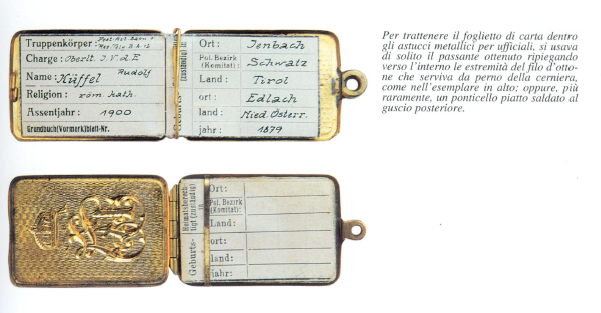 Truppenkörper:
Charge: Oberlt. I. V. d. E
Name: Küffel Rudolf
Religion: röm. kath.
Assentjahr: 1900
Grundbuch(Vormerk)blatt-Nr.
zuständig in
Ort: Jenbach
Pol. Bezirk (Komitat): Schwatz
Land: Tirol
ort: Edlach
land: Nied. Österr.
jahr: 1879
Per trattenere il foglietto di carta dentro
gli astucci metallici per ufficiali, si usava
di solito il passante ottenuto ripiegando
verso l'interno le estremità del filo d'otto-
ne che serviva da perno della cerniera,
come nell'esemplare in alto; oppure, più
raramente, un ponticello piatto saldato al
guscio posteriore.
Heimatsberech-
tigt (zuständig)
in
Ort:
Pol. Bezirk
(Komitat):
Land:
Geburts-
ort:
land:
jahr: